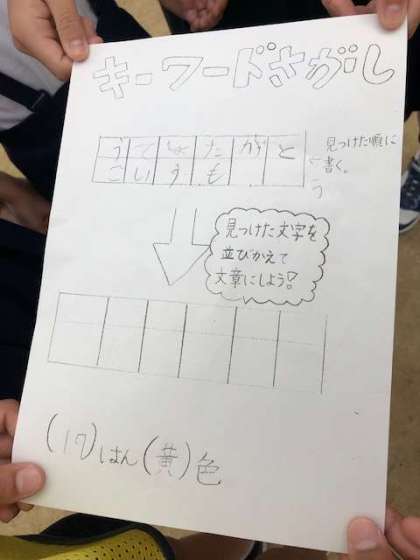 キーワードさがし
うてしょたがと
こいうも
見つけた順に
書く。
う
見つけた文字を
並びかえて
文章にしよう!
(17)はん(黄)色